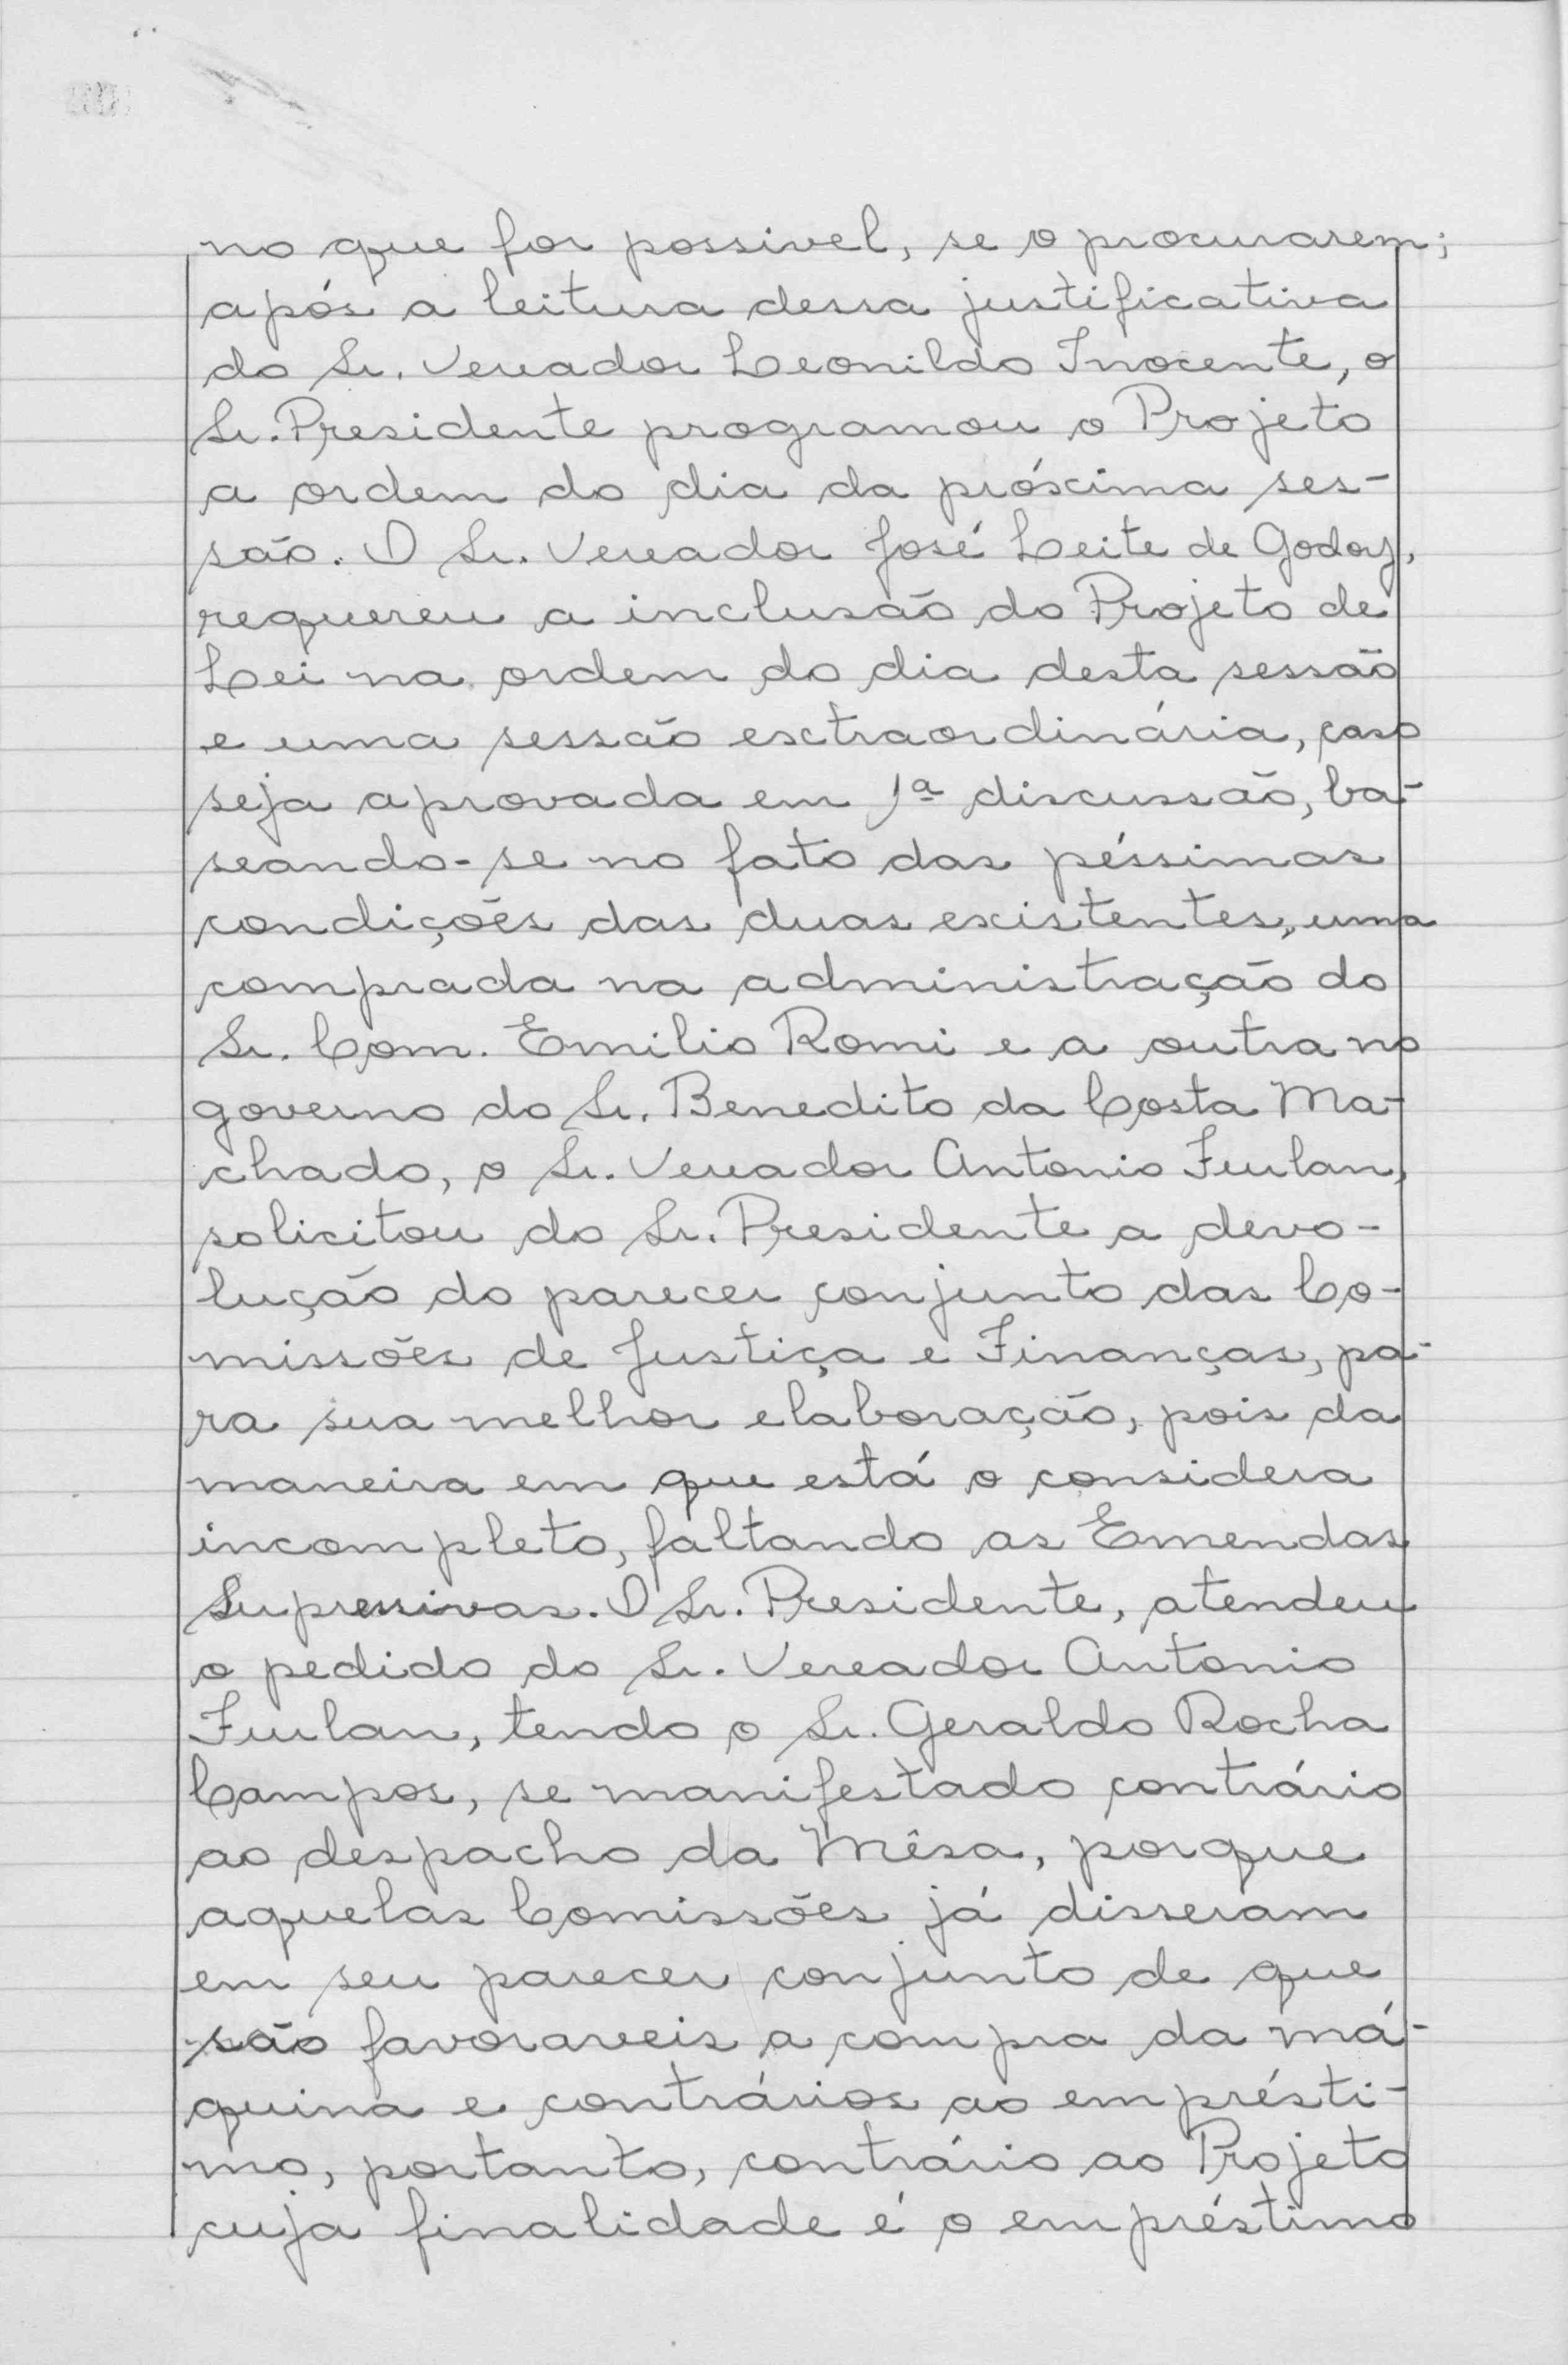 no que for possivel, se o procurarem;
após a leitura dessa justificativa
do Sr. Vereador Leonildo Inocente, o
Sr. Presidente programou o Projeto
a ordem do dia da próxima ses-
são. O Sr. Vereador José Leite de Godoy,
requereu a inclusão do Projeto de
Lei na ordem do dia desta sessão
e uma sessão extraordinária, caso
seja aprovada em 1ª discussão, ba-
seando-se no fato das péssimas
condições das duas existentes, uma
comprada na administração do
Sr. Com. Emilio Romi e a outra no
governo do Sr. Benedito da Costa Ma-
chado, o Sr. Vereador Antonio Furlan,
solicitou do Sr. Presidente a devo-
lução do parecer conjunto das Co-
missões de Justiça e Finanças, pa-
ra sua melhor elaboração, pois da
maneira em que está o considera
incompleto, faltando as Emendas
Supressivas. O Sr. Presidente, atendeu
o pedido do Sr. Vereador Antonio
Furlan, tendo o Sr. Geraldo Rocha
Campos, se manifestado contrário
ao despacho da Mêsa, porque
aquelas Comissões já disseram
em seu parecer conjunto de que
são favoraveis a compra da má-
quina e contrários ao emprésti-
mo, portanto, contrário ao Projeto
cuja finalidade é o empréstimo